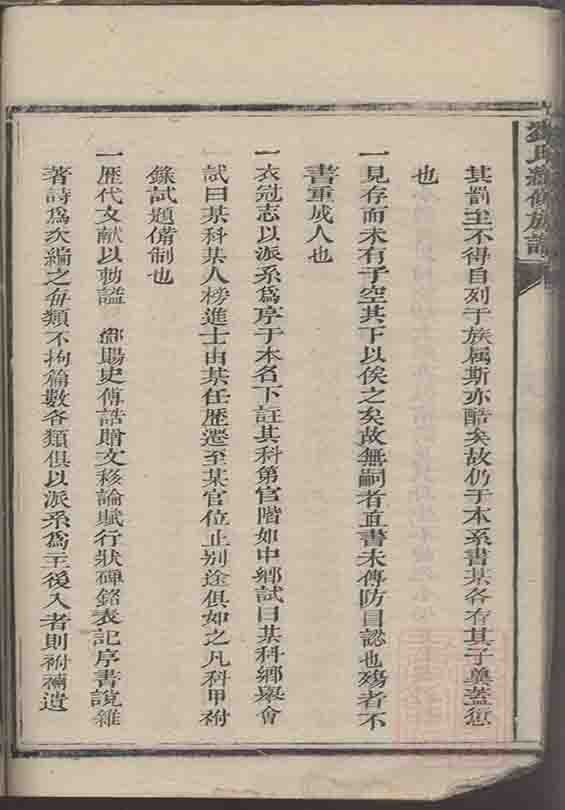 氏續修族譜
其罰至不得自列于族属斯亦酷矣故仍于本系書某各存其子冀蓋愆
也
一見存而未有子空其下以俟之矣故無嗣者直書未傳防冒認也殤者不
書重成人也
一衣冠志以派系爲序于本名下註其科第官階如中鄉試曰某科鄉舉會
試曰某科某人榜進士由某任歷遷至某官位止别途俱如之凡科甲附
錄試題備制也
一歷代文献以勅謚 御賜史傳誥贈文移論賦行狀碑銘表記序書說雜
著詩爲次編之每類不拘篇數各類俱以派系爲主後入者則附補遺